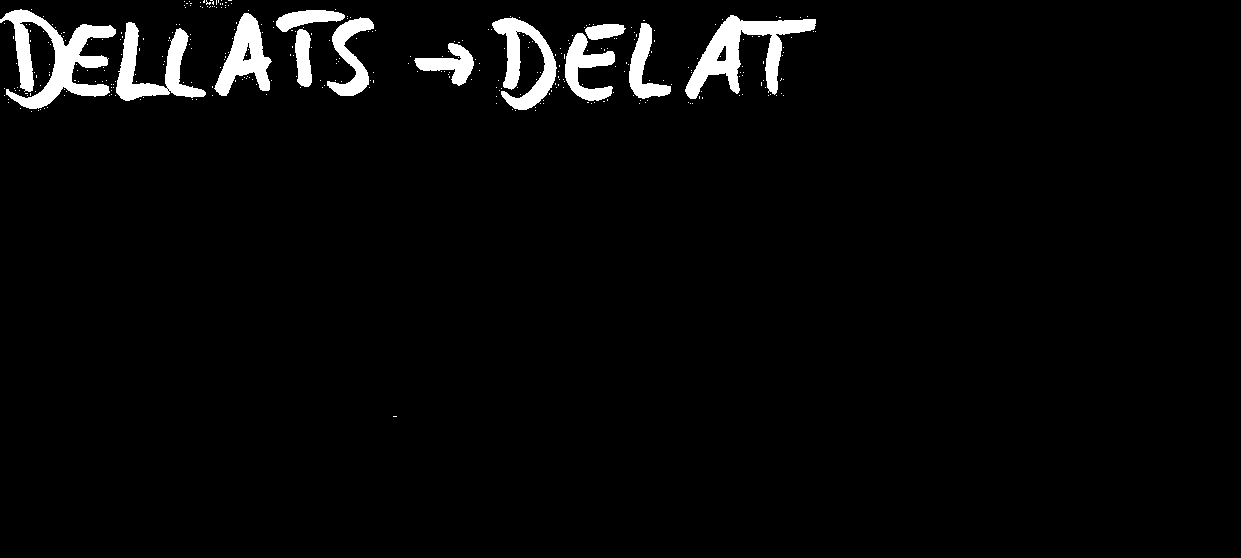 DELLATS → DELAT